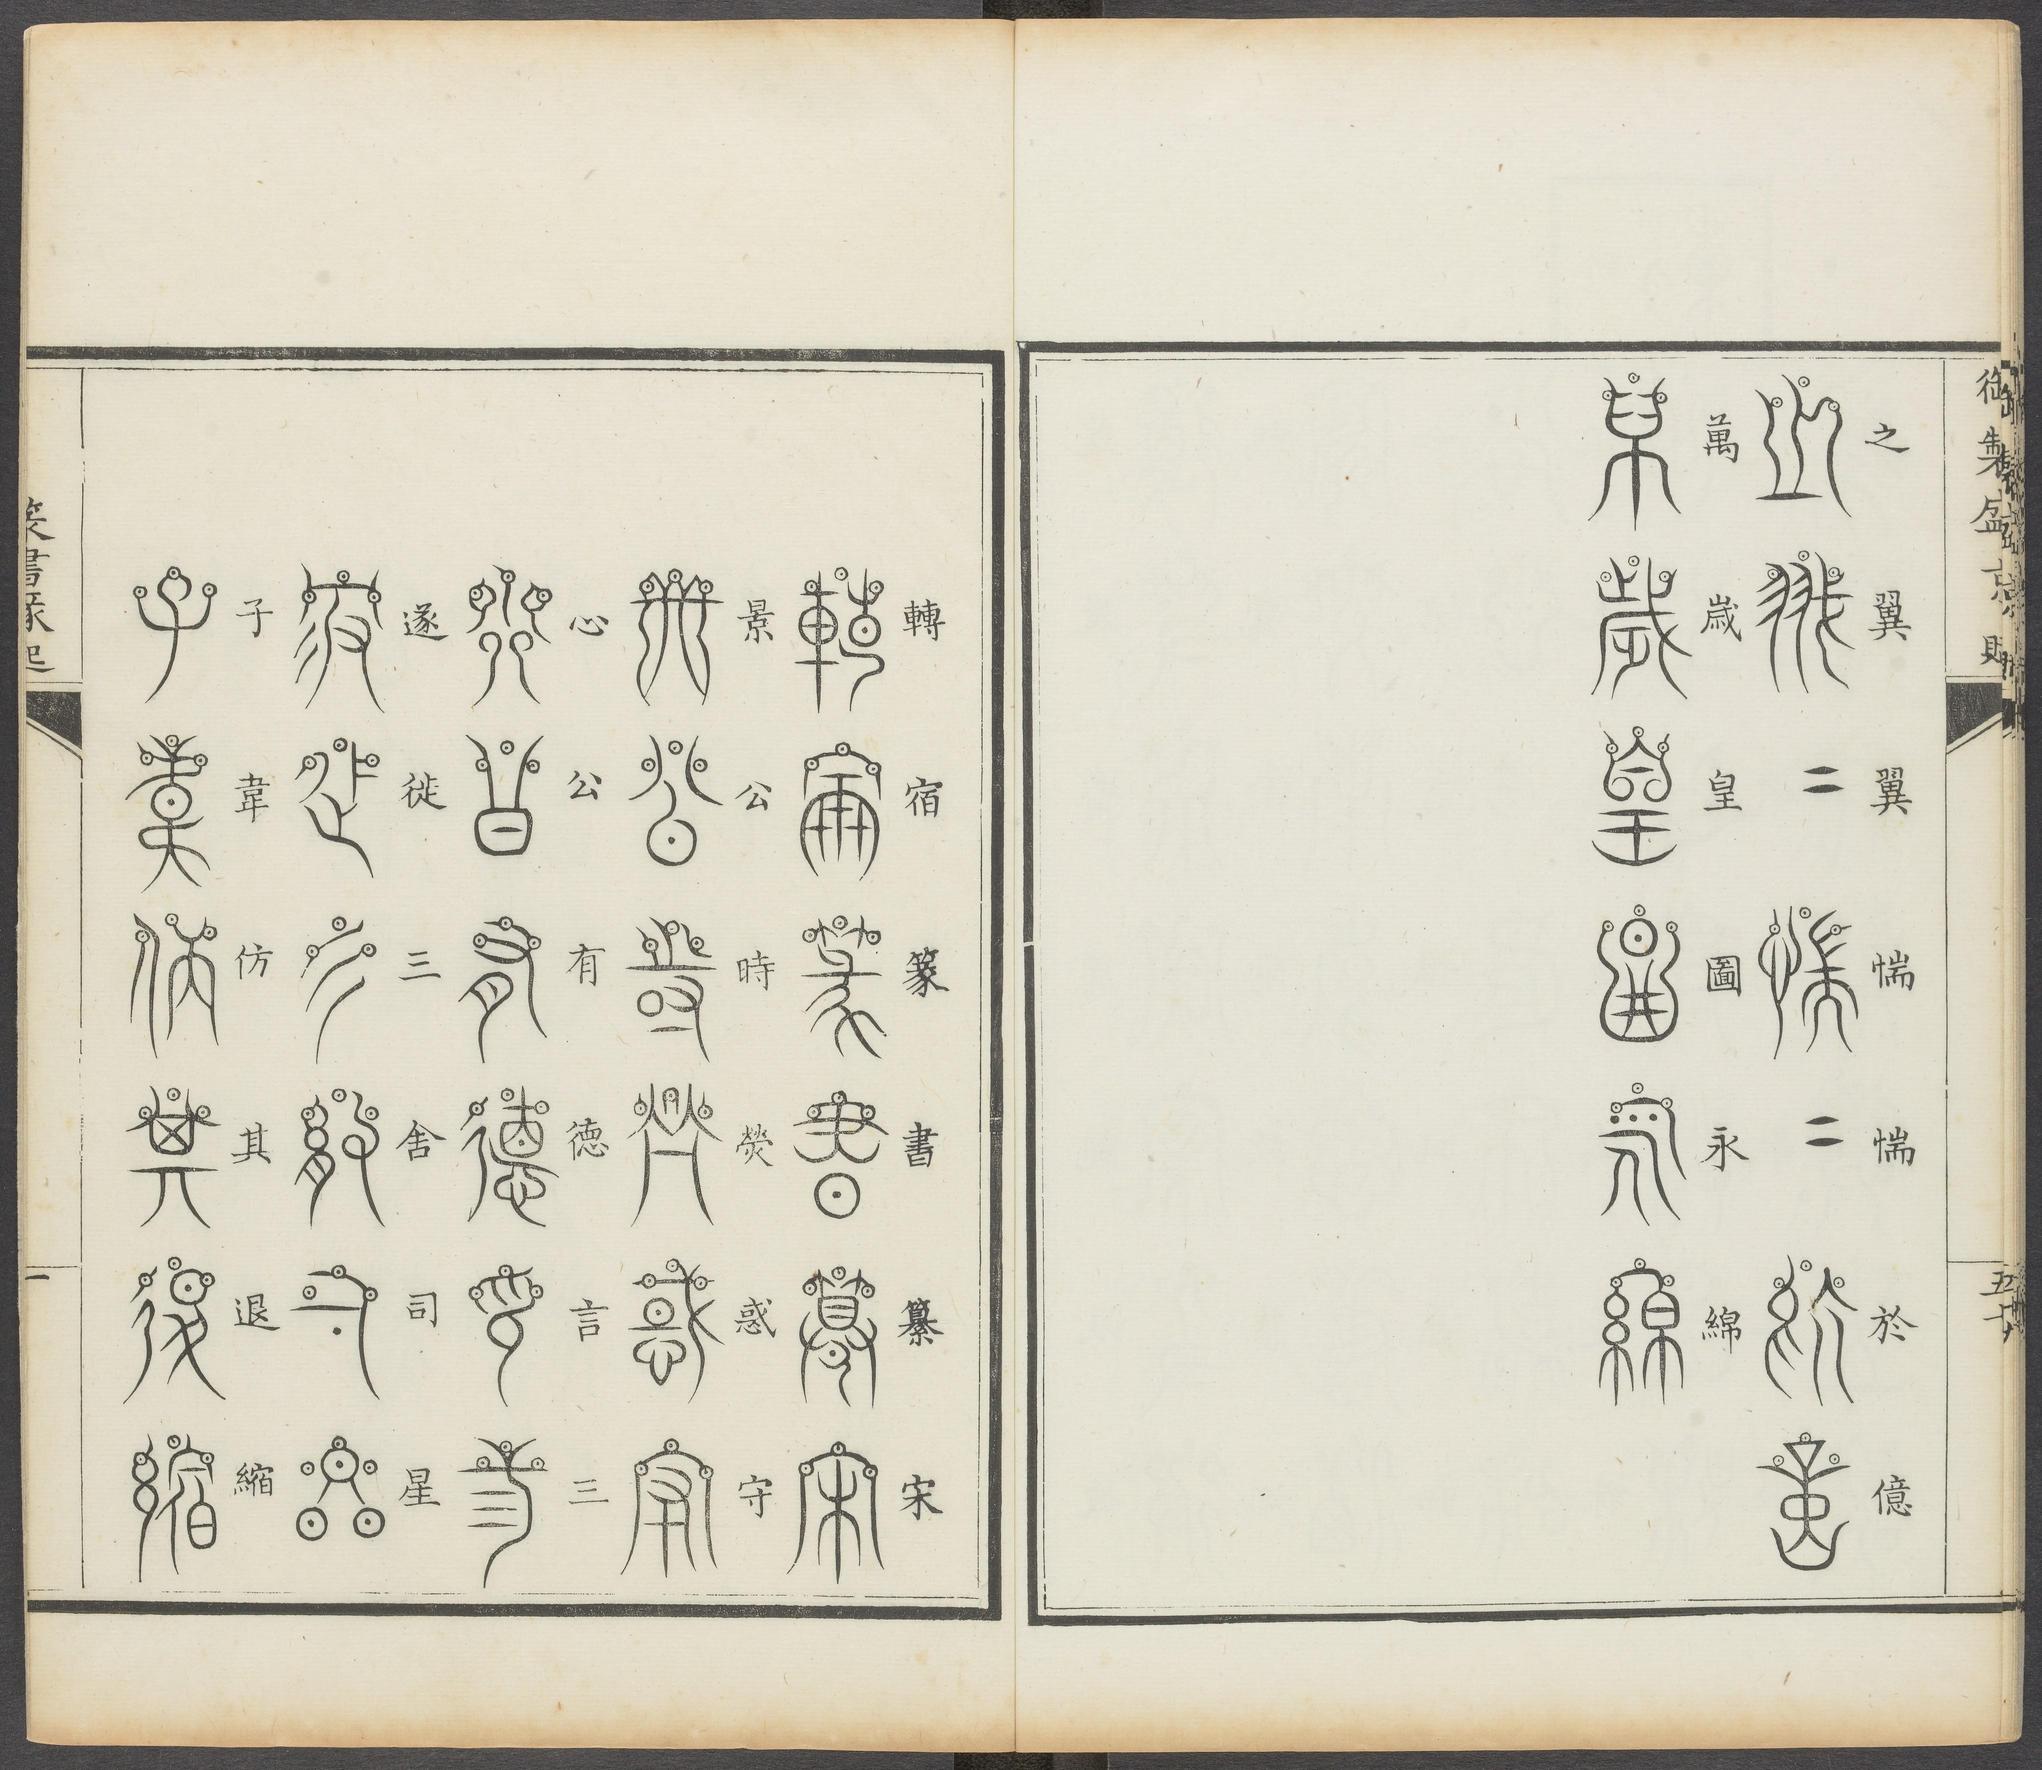 御製盛京賦
之翼翼惴惴於億
萬歲皇圖永綿
五十
轉宿篆書纂宋
景公時熒惑守
心公有德言三
遂徙三舍司星
子韋仿其退縮
篆書緣起
一